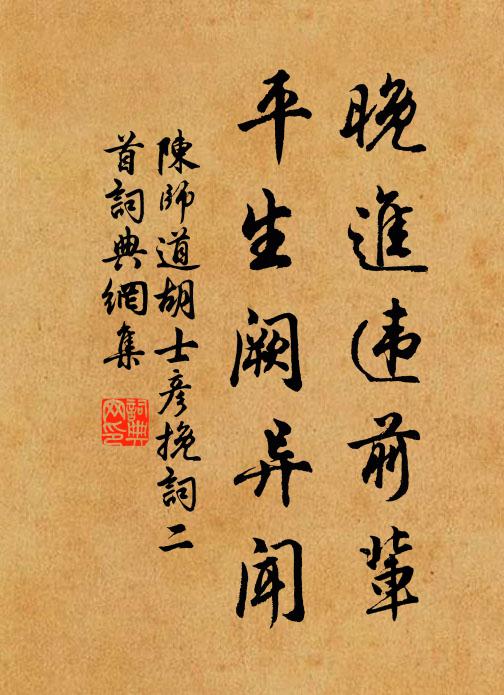 晚進违前輩
平生阙异闻
陳師道胡士彦挽詞二
首詞典網集
詞典
网印